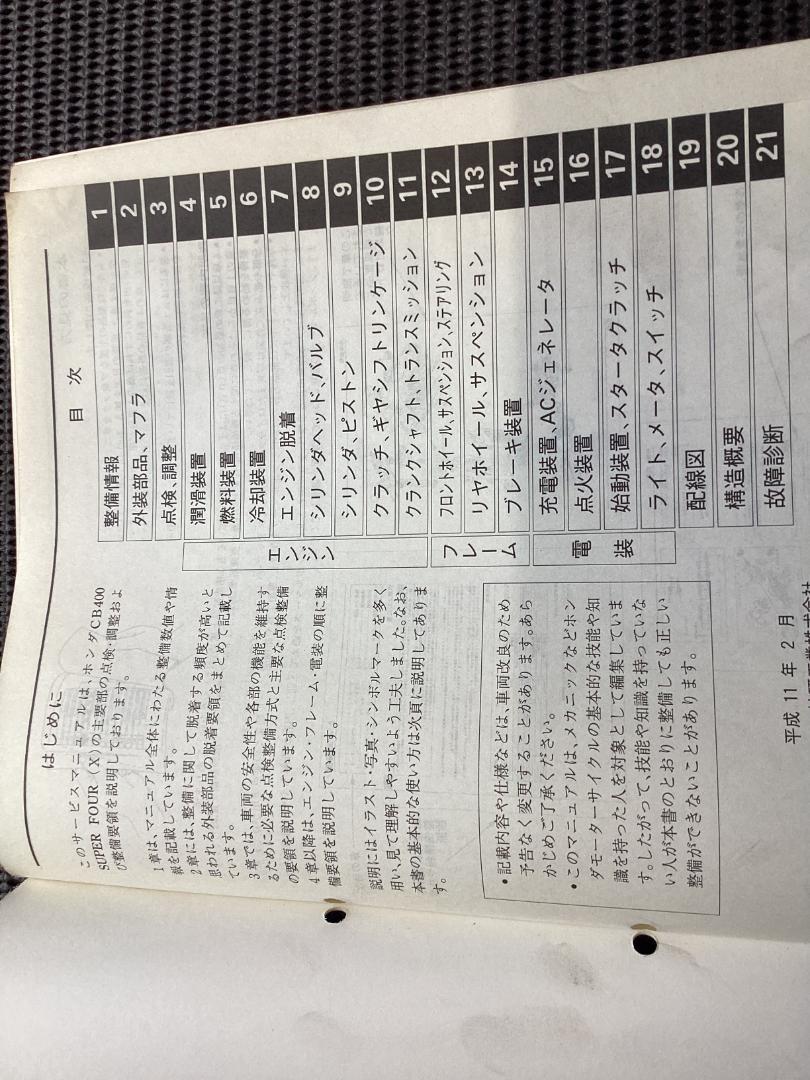 はじめに
このサービスマニュアルは、ホンダCB400
SUPER FOUR（X）の主要部の点検・調整およ
び整備要領を説明しております。
1章は、マニュアル全体にわたる整備数値や情
報を記載しています。
2章には、整備に関して脱着する頻度が高いと
思われる外装部品の脱着要領をまとめて記載し
ています。
3章では、車両の安全性や各部の機能を維持す
るために必要な点検整備方式と主要な点検整備
の要領を説明しています。
4章以降は、エンジン・フレーム・電装の順に整
備要領を説明しています。
説明にはイラスト・写真・シンボルマークを多く
用い、見て理解しやすいよう工夫しました。なお、
本書の基本的な使い方は次頁に説明してありま
す。
•記載内容や仕様などは、車両改良のため
予告なく変更することがあります。あら
かじめご了承ください。
•このマニュアルは、メカニックなどホン
ダモーターサイクルの基本的な技能や知
識を持った人を対象として編集していま
す。したがって、技能や知識を持っていな
い人が本書のとおりに整備しても正しい
整備ができないことがあります。
平成 11 年 2 月
目 次
整備情報 1
外装部品、マフラ 2
点検、調整 3
エンジン
潤滑装置 4
燃料装置 5
冷却装置 6
エンジン脱着 7
シリンダヘッド、バルブ 8
シリンダ、ピストン 9
クラッチ、ギヤシフトリンケージ 10
クランクシャフト、トランスミッション 11
フレーム
フロントホイール、サスペンション、ステアリング 12
リヤホイール、サスペンション 13
ブレーキ装置 14
電装
充電装置、ACジェネレータ 15
点火装置 16
始動装置、スタータクラッチ 17
ライト、メータ、スイッチ 18
配線図 19
構造概要 20
故障診断 21